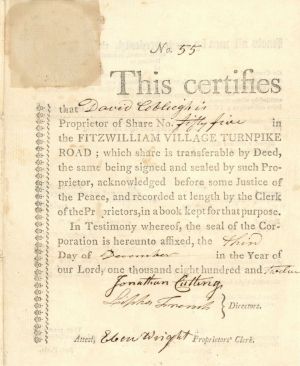 No. 55
This certifies
that David
Proprietor of Share No. fifty five in
the FITZWILLIAM VILLAGE TURNPIKE
ROAD; which share is transferable by Deed,
the same being signed and sealed by such Pro-
prietor, acknowledged before some Justice of
the Peace, and recorded at length by the Clerk
of the Pr prietors, in a book kept for that purpose.
In Testimony whereof, the seal of the Cor-
poration is hereunto affixed, the
Day of December in the Year of
our Lord, one thousand eight hundred and
Jonathan Cutting
} Directors.
Attest, Eben Wright Proprietors' Clerk.